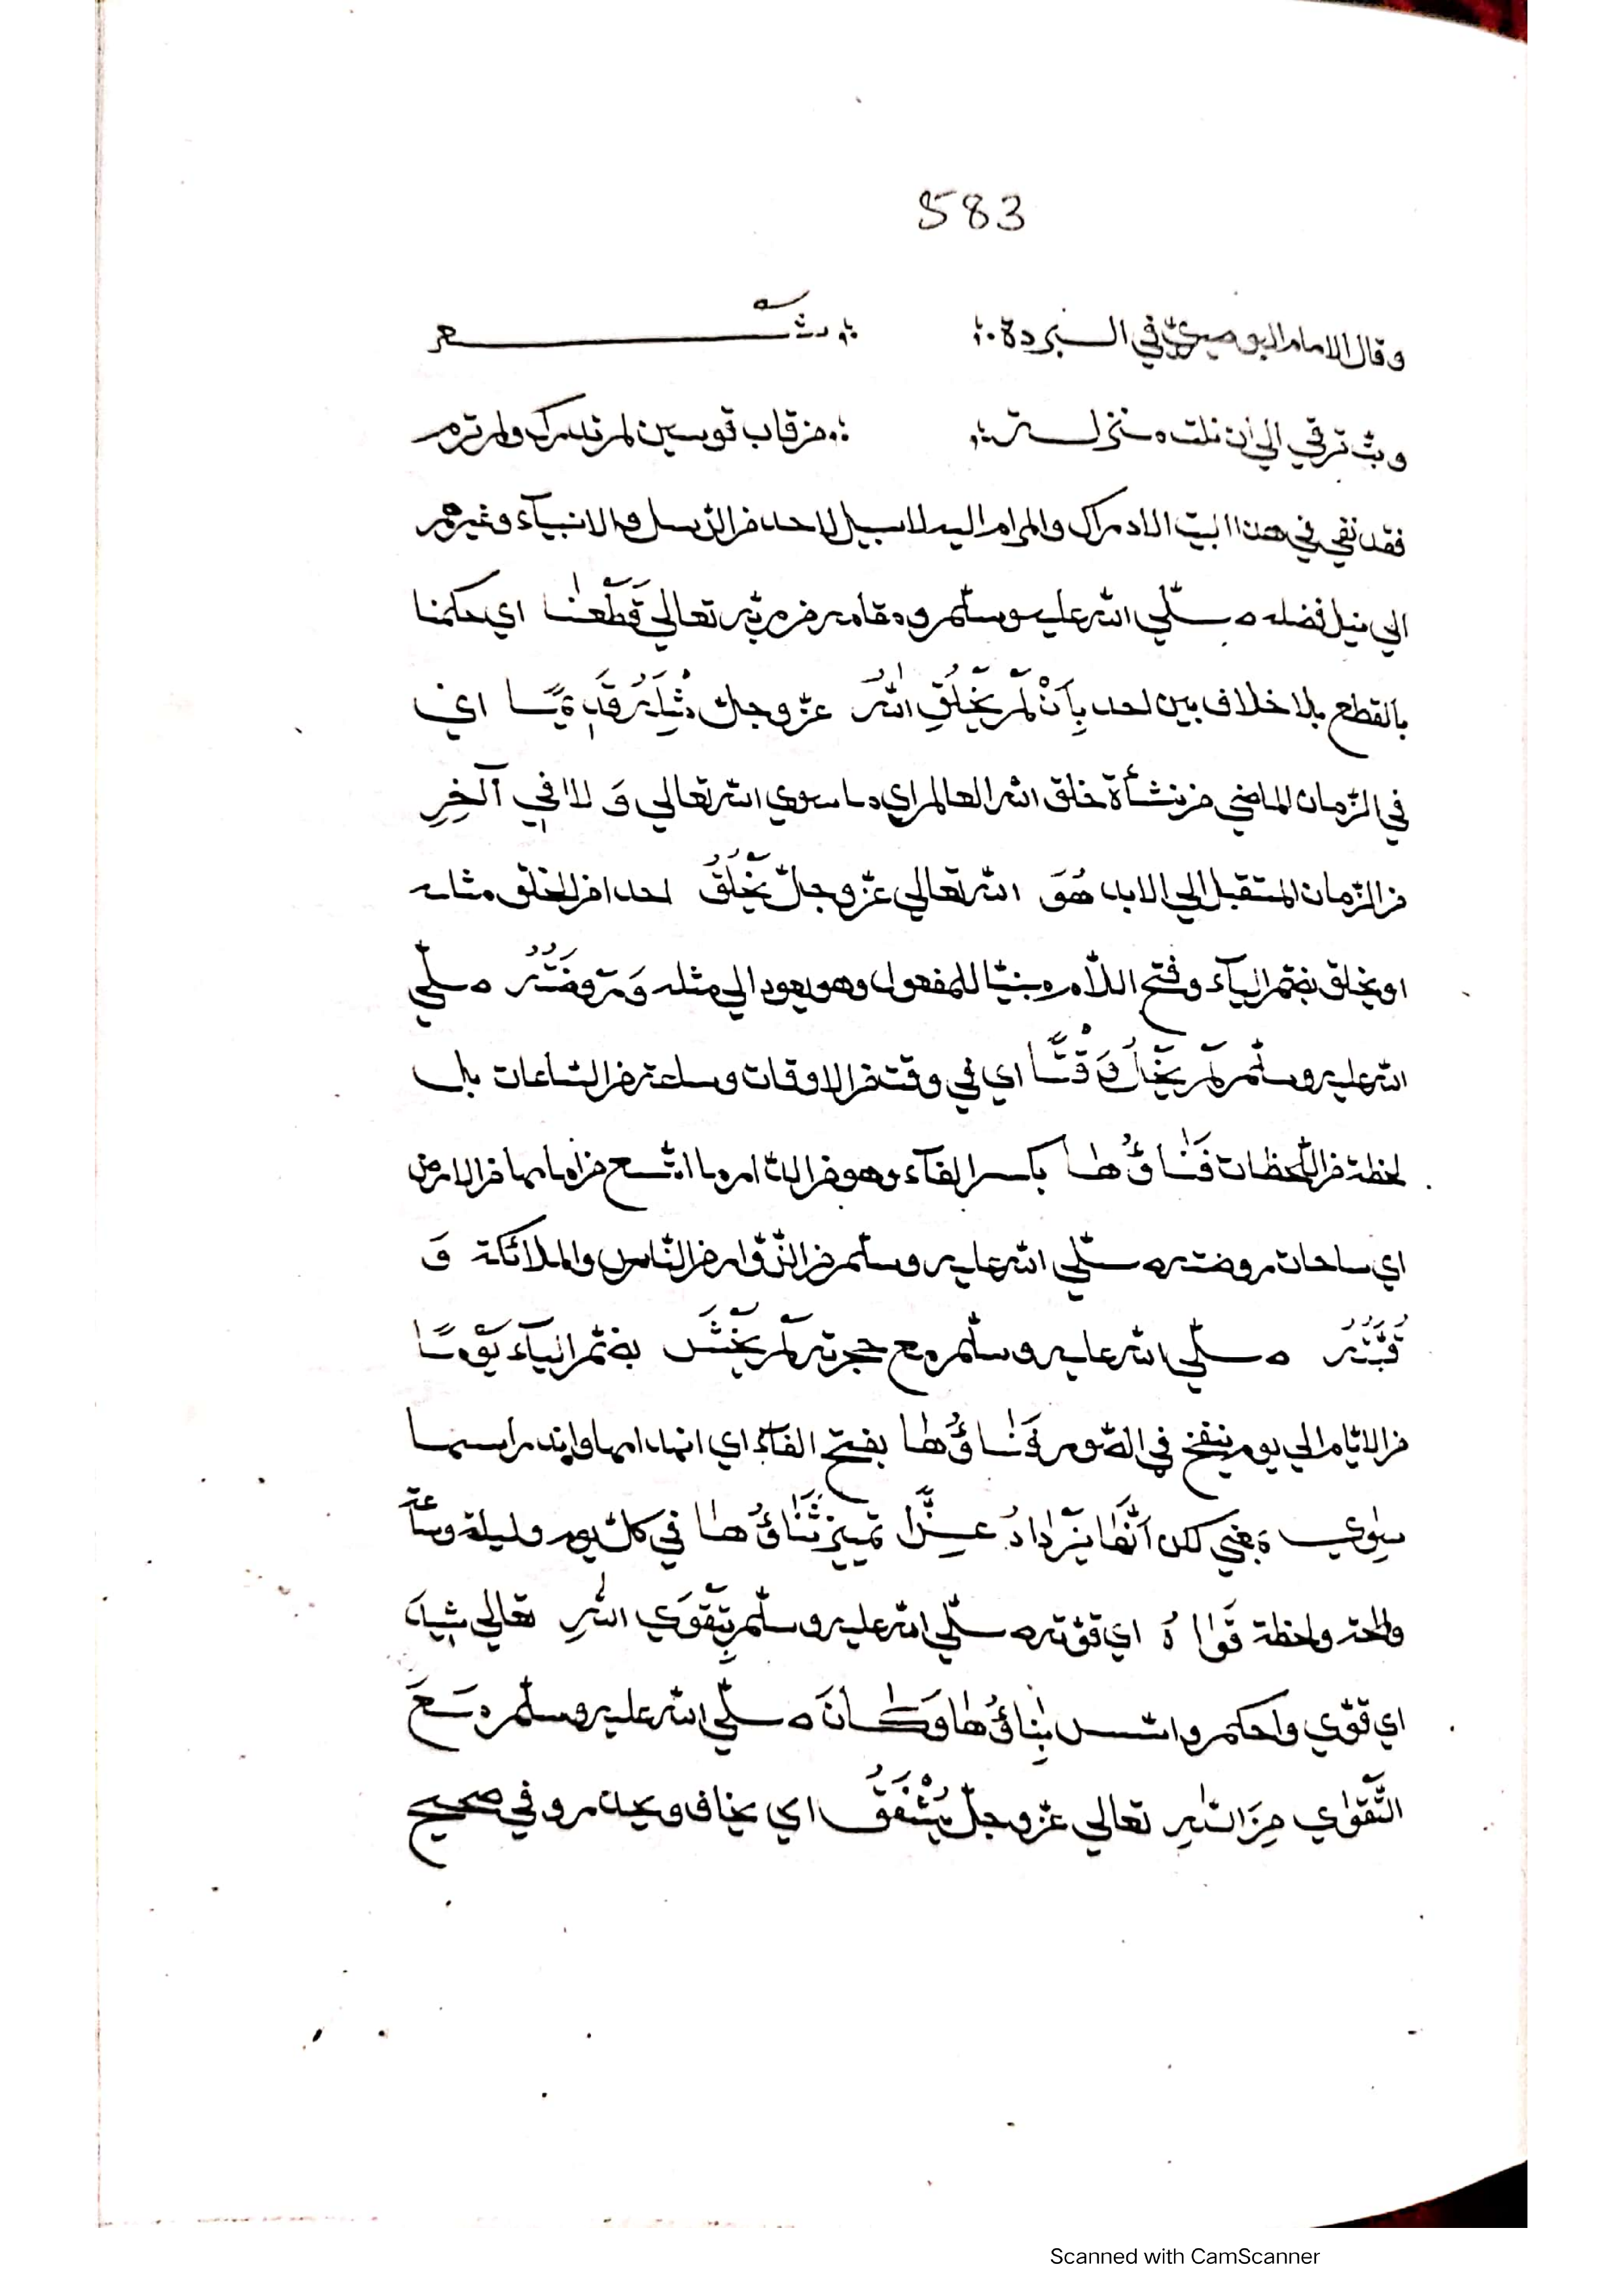 583
وقال الامام البوصيريّ في البردة ∴ ∴ شعر
وبتّ ترقي الي ان نلت منزلة ∴ ∴ من قاب قوسين لم تدرك ولم ترم
فقد نفي في هذا البيت الادراك والمرام اليه لا سبيل لاحد من الرّسل والانبيآء وغيرهم
الي نيل فضله صلّي الله عليه وسلّم ومقامه من ربّه تعالي قَطَعْنٰا اي حكمنا
بالقطع بلا خلاف بين احد بِأَنْ لَمْ يَخْلُقِ اللهُ عزّ وجلّ مِثْلَهُ قَدِيْمًا اي
في الزّمان الماضي من نشأة خلق الله العالم اي ما سوي الله تعالي وَ لا في آخِرِ
من الزّمان المستقبل الي الابد هُوَ الله تعالي عزّ وجلّ يَخْلُقُ احدا من الخلق مثله
او يخلق بضمّ اليآء وفتح اللّام مبنيّا للمفعول وهو يعود الي مثله وَرَوْضَتُهُ صلّي
الله عليه وسلّم لَمْ يَخْلُ وَقْتًا اي في وقت من الاوقات وساعة من السّاعات بل
لحظة من اللّحظات فِنٰاؤُهٰا بكسر الفآء وهو من الدّار ما اتّسع من امامها من الارض
اي ساحات روضته صلّي الله عليه وسلّم من الزّوّار من النّاس والملائكة وَ
قُبَّتُهُ صلّي الله عليه وسلّم مع حجرته لَمْ يُخْشَ بضمّ اليآء يَوْمًا
من الايّام الي يوم ينفخ في الصّور فَنٰاؤُهٰا بفتح الفآء اي انهدامها واندراسها
سِوٰي بمعني لكن أَنَّهٰا يَزْدٰادُ عِزًّا تمييز ثَنٰاؤُهٰا في كلّ يوم وليلة وساعة
ولمحة ولحظة قُوٰاهُ اي قوّته صلّي الله عليه وسلّم بِتَقْوَي اللهِ تعالي شِيْدَ
اي قوّي واحكم واسّس بِنٰاؤُهٰا وَكٰانَ صلّي الله عليه وسلّم مَعَ
التَّقْوٰي مِنَ اللهِ تعالي عزّ وجلّ يُشْفَقُ اي يخاف ويحذر وفي صحيح
Scanned with CamScanner